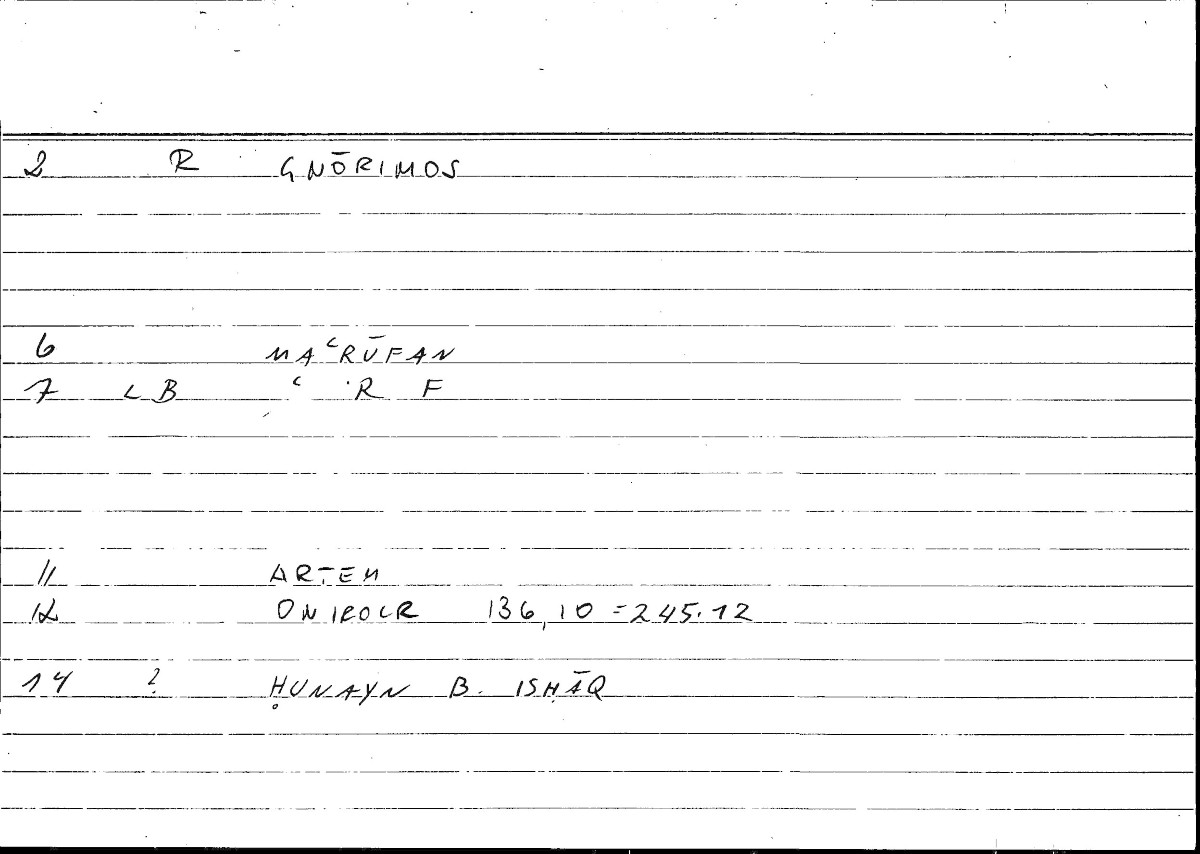 2 R GNŌRIMOS
6 MAʿRŪFAN
7 LB ʿ R F
11 ARTEM
12 ONIROCR 136,10 = 245.12
14 ? ḤUNAYN B. ISḤĀQ